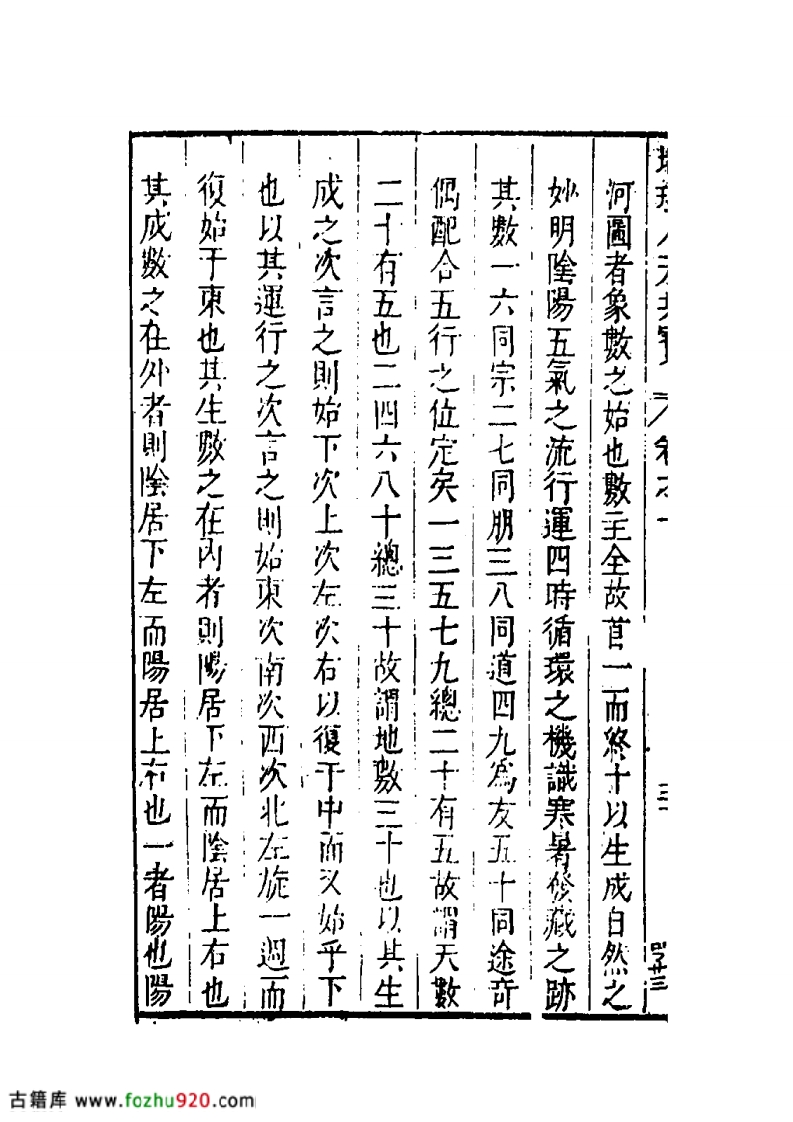 河圖者象數之始也數主全故首一而終十以生成自然之
妙明陰陽五氣之流行運四時循環之機識寒暑發藏之跡
其數一六同宗二七同朋三八同道四九為友五十同途奇
偶配合五行之位定矣一三五七九總二十有五故謂天數
二十有五也二四六八十總三十故謂地數三十也以其生
成之次言之則始下次上次左次右以復于中而又始乎下
也以其運行之次言之則始東次南次西次北左旋一週而
復始于東也其生數之在內者則陽居下左而陰居上右也
其成數之在外者則陰居下左而陽居上右也一者陽也陽
古籍库 www.fozhu920.com